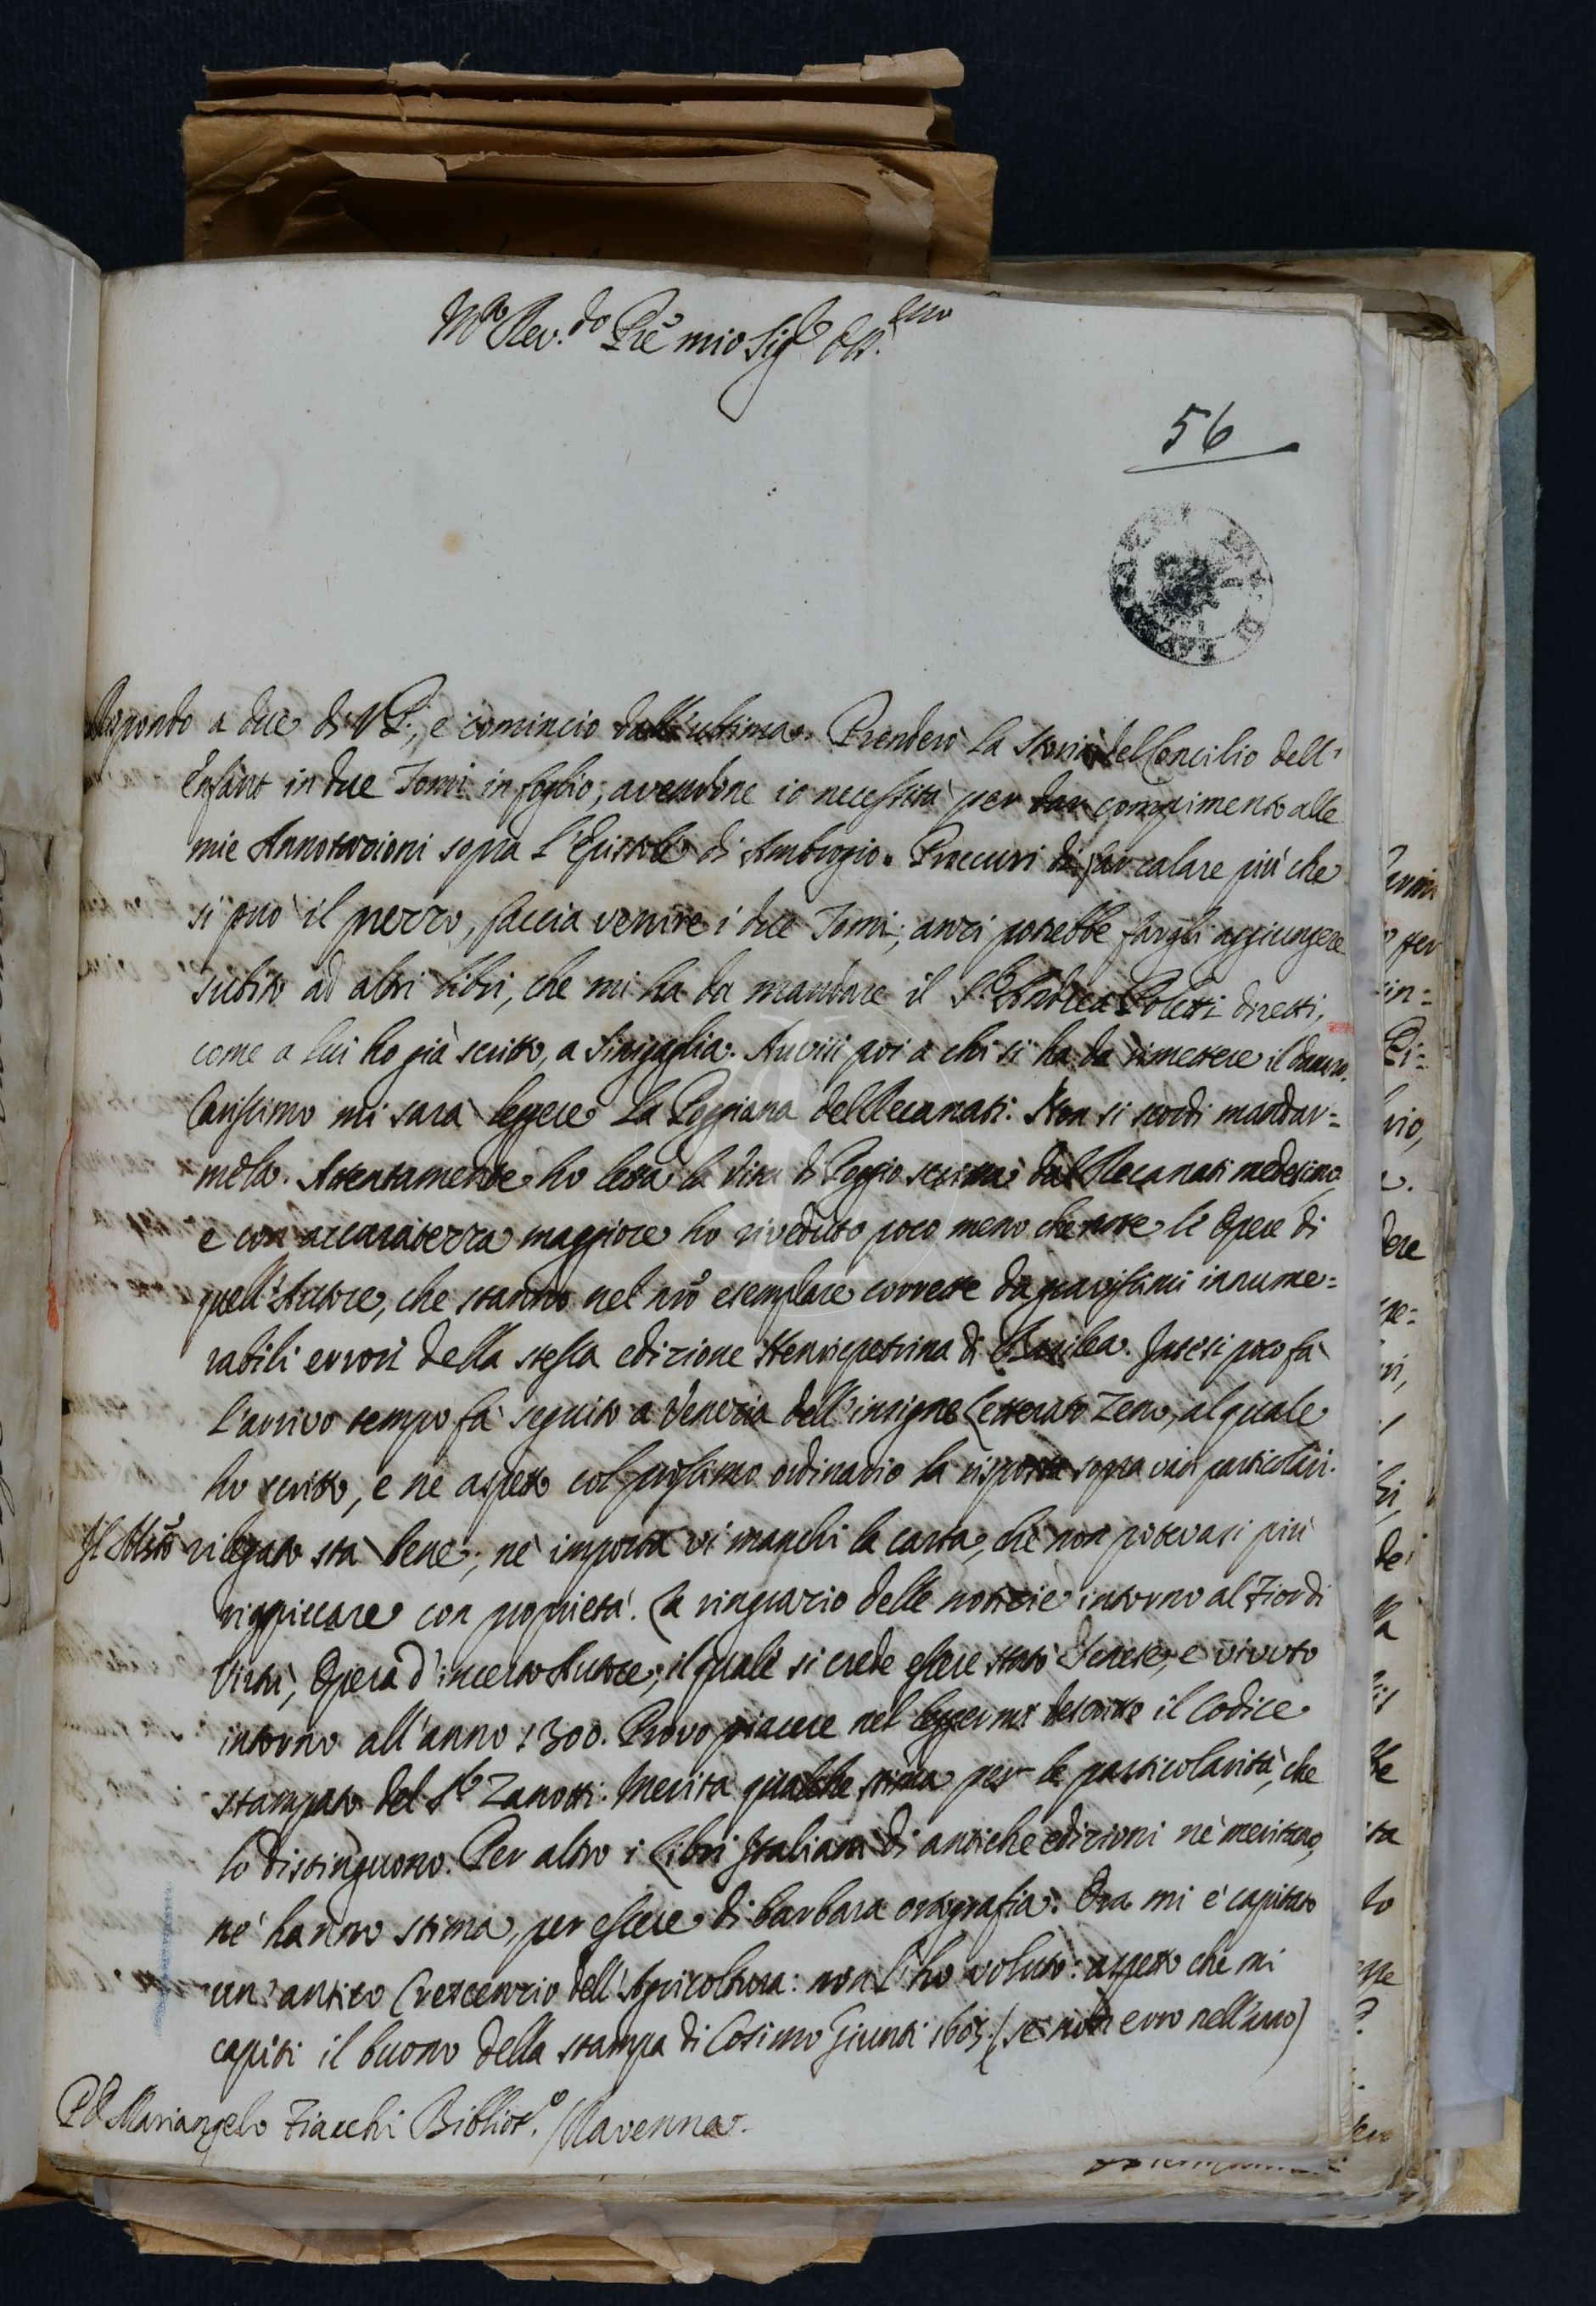 M.to Rev.do Prē mio Sig.re Oss.mo
56
Rispondo a due di V. P., e comincio dall'ultima. Prenderò la Storia del Concilio dell'
Enfant in due Tomi in foglio, avendone io necessità per dar compimento alle
mie Annotazioni sopra l'Epistole di Ambrogio. Procuri di far calare più che
si può il prezzo, faccia venire i due Tomi; anzi potrebbe fargli aggiungere
subito ad altri libri, che mi ha da mandare il S.r Andrea Poletti diretti,
come a lui ho già scritto, a Sinigaglia. Avvisi poi a chi si ha da rimettere il danaro.
Carissimo mi sarà leggere la Poggiana del Recanati: Non si scordi mandar=
mela. Attentamente ho letta la Vita di Poggio scritta dal Recanati medesimo,
e con accuratezza maggiore ho riveduto poco meno che tutte le Opere di
quell'Autore, che stanno nel mio esemplare corrette da gravissimi innume=
rabili errori della stessa edizione Henricpetrina di Basilea. Intesi poco fa
l'arrivo tempo fa seguito a Venezia dell'insigne Letterato Zeno, al quale
ho scritto, e ne aspetto col prossimo ordinario la risposta sopra varj particolari.
Il Msto rilegato sta bene; nè importa vi manchi la carta, che non potevasi più
rappiccare con proprietà. La ringrazio delle notizie intorno al Fior di
Virtù, Opera d'incerto Autore, il quale si crede essere stato Senese, e vivuto
intorno all'anno 1300. Provo piacere nel leggermi descritto il Codice
stampato del S.r Zanotti. Merita qualche stima per le particolarità, che
lo distinguono. Per altro i Libri Italiani di antiche edizioni nè meritano,
nè hanno stima, per essere di barbara ortografia. Ora mi è capitato
un'antico Crescenzio dell'Agricoltura: non l'ho voluto: aspetto che mi
capiti il buono della stampa di Cosimo Giunti 1605. (se non erro nell'anno)
P. D. Mariangelo Fiacchi Bibliot.o / Ravenna.